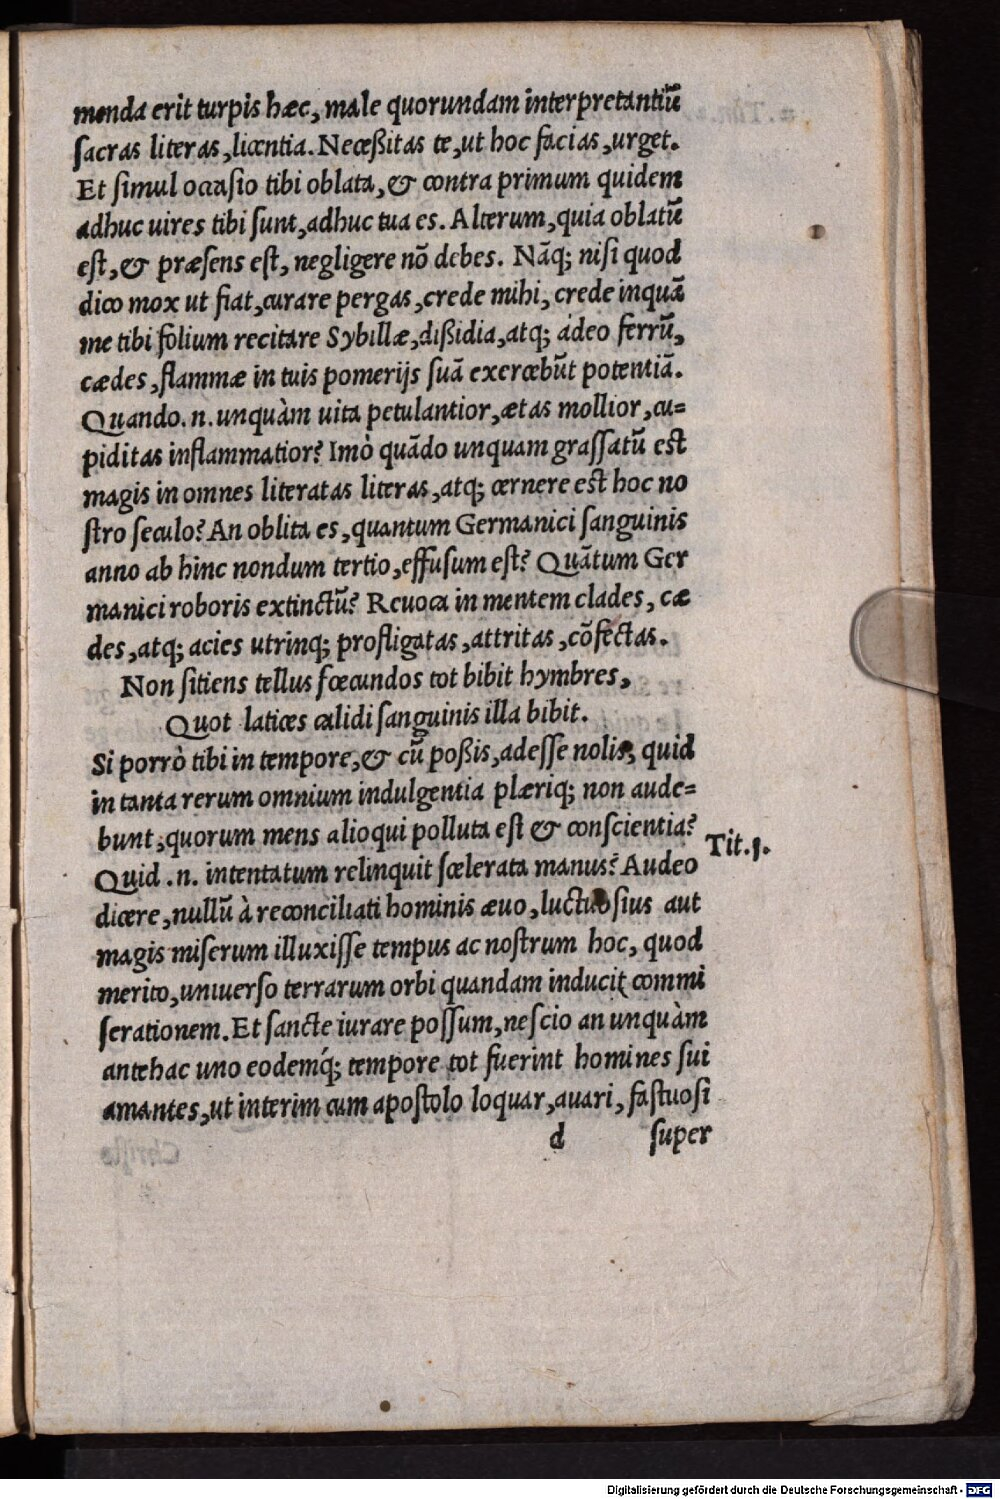 menda erit turpis hæc, male quorundam interpretantiũ
sacras literas, licentia. Neceßitas te, ut hoc facias, urget.
Et simul occasio tibi oblata, & contra primum quidem
adhuc uires tibi sunt, adhuc tua es. Alterum, quia oblatũ
est, & præsens est, negligere nõ debes. Nãq; nisi quod
dico mox ut fiat, curare pergas, crede mihi, crede inquã
me tibi folium recitare Sybillæ, dißidia, atq; adeo ferrũ,
cædes, flammæ in tuis pomerijs suã exercebũt potentiã.
Quando .n. unquàm uita petulantior, ætas mollior, cu=
piditas inflammatior? Imò quãdo unquam grassatũ est
magis in omnes literatas literas, atq; cernere est hoc no
stro seculo? An oblita es, quantum Germanici sanguinis
anno ab hinc nondum tertio, effusum est? Quãtum Ger
manici roboris extinctũ? Reuoca in mentem clades, cæ
des, atq; acies utrinq; profligatas, attritas, cõfectas.
Non sitiens tellus fœcundos tot bibit hymbres,
Quot latices calidi sanguinis illa bibit.
Si porrò tibi in tempore, & cũ poßis, adesse nolis, quid
in tanta rerum omnium indulgentia plæriq; non aude=
bunt, quorum mens alioqui polluta est & conscientia?
Tit.1.
Quid .n. intentatum relinquit scelerata manus? Audeo
dicere, nullũ à reconciliati hominis æuo, luctuosius aut
magis miserum illuxisse tempus ac nostrum hoc, quod
merito, uniuerso terrarum orbi quandam inducit commi
serationem. Et sancte iurare possum, nescio an unquàm
antehac uno eodemq́; tempore tot fuerint homines sui
amantes, ut interim cum apostolo loquar, auari, fastuosi
d super
Digitalisierung gefördert durch die Deutsche Forschungsgemeinschaft - DFG